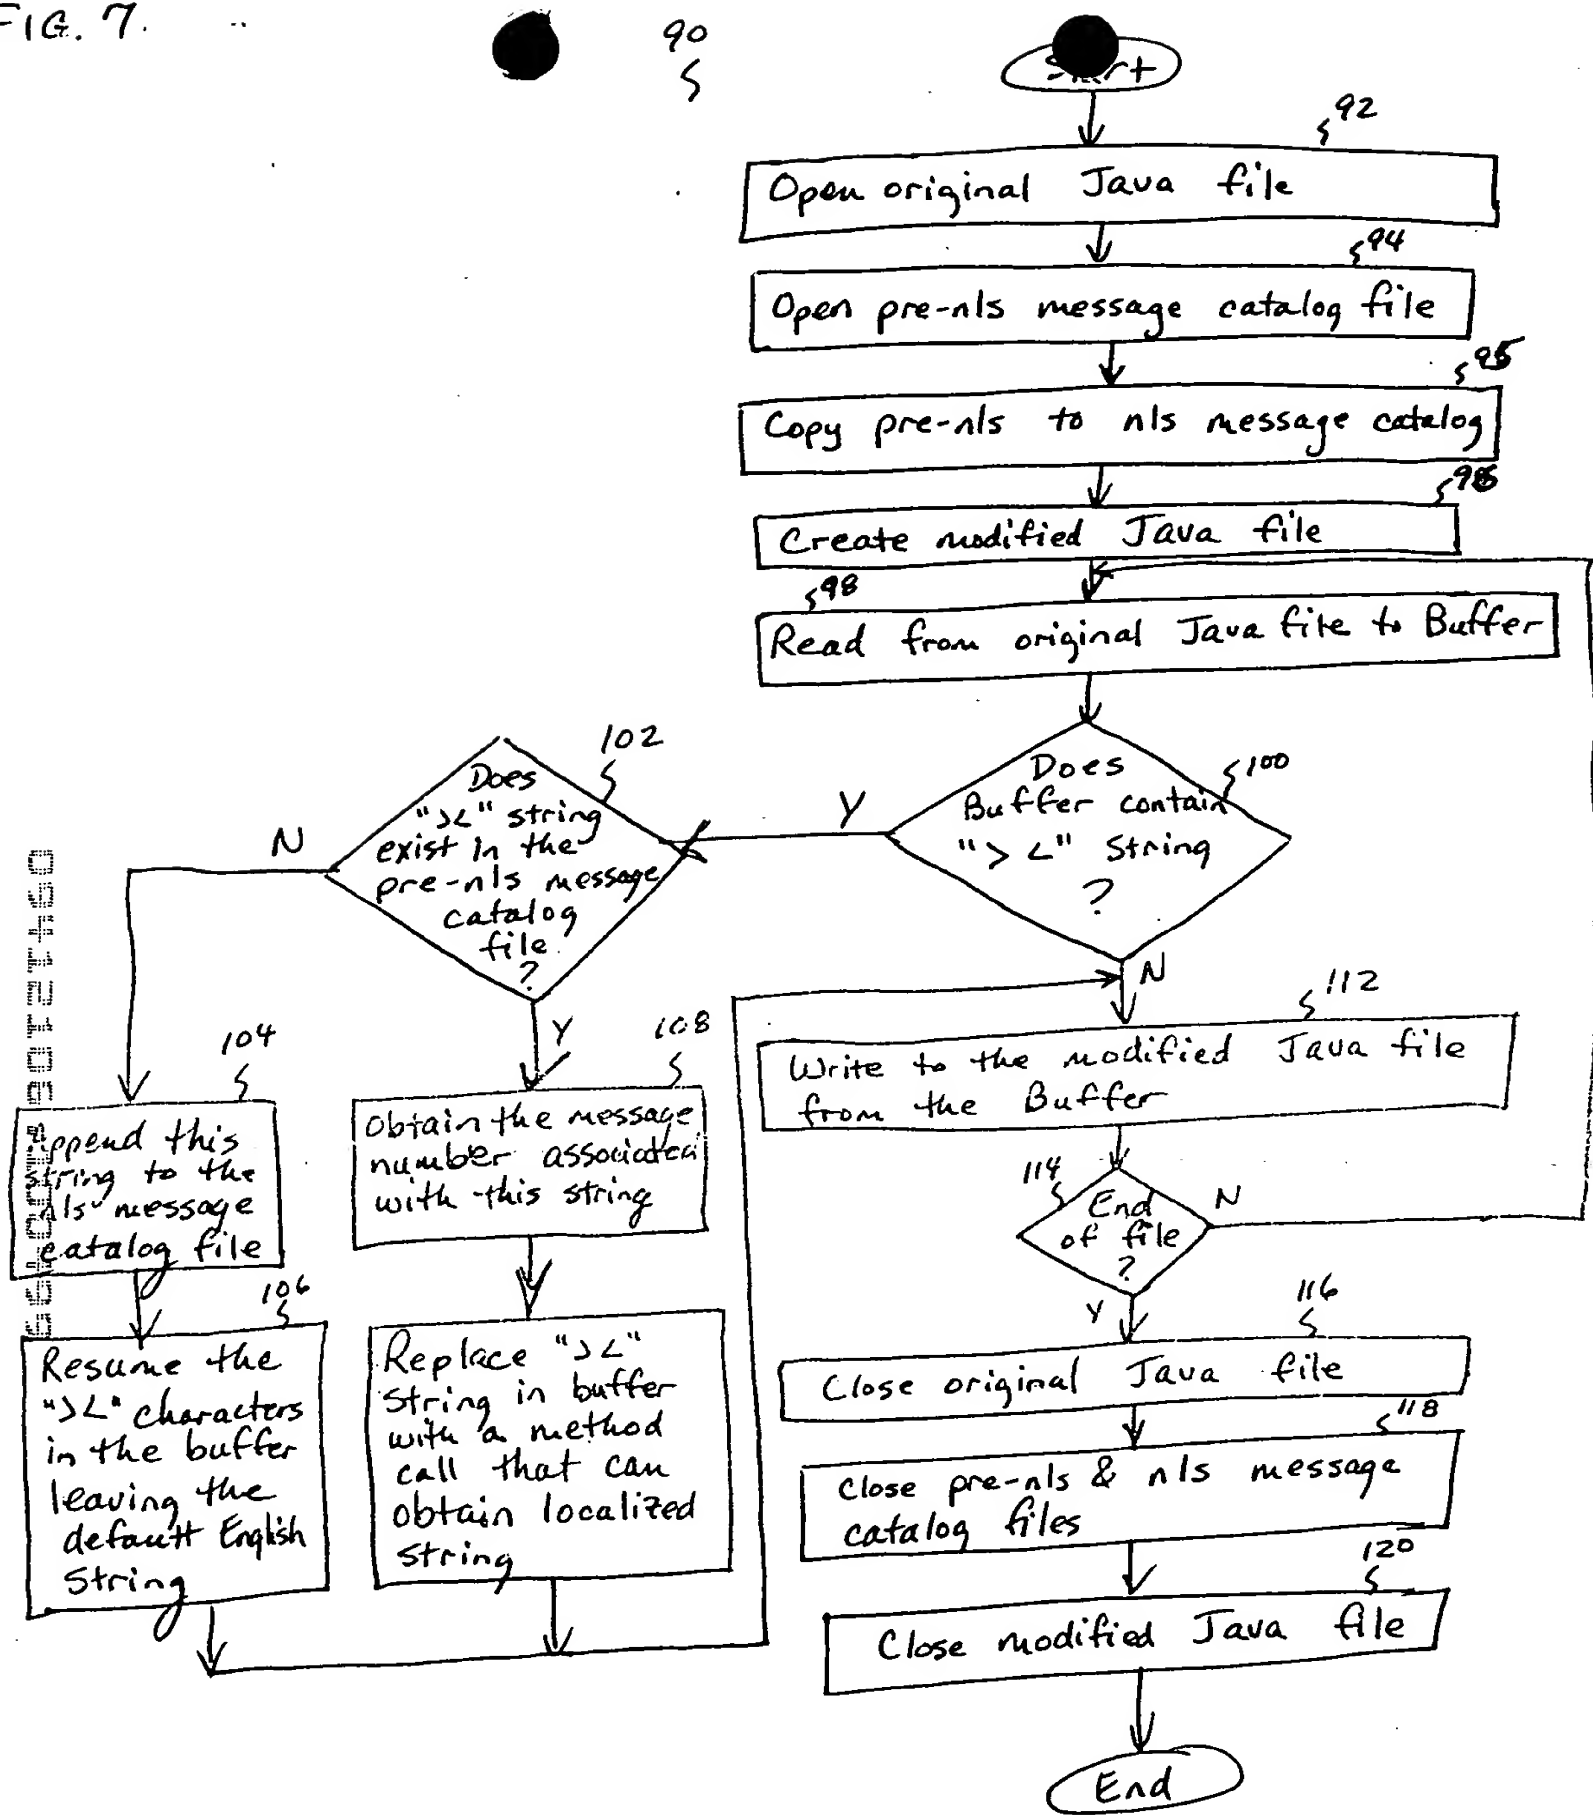 FIG. 7.
90
Start
92
Open original Java file
94
Open pre-nls message catalog file
95
Copy pre-nls to nls message catalog
96
Create modified Java file
98
Read from original Java file to Buffer
100
Does
Buffer contain
"> <" String
?
Y
N
102
Does
"><" string
exist in the
pre-nls message
catalog
file
?
N
Y
104
Append this
string to the
nls message
catalog file
106
Resume the
"><" characters
in the buffer
leaving the
default English
String
108
Obtain the message
number associated
with this string
Replace "><"
String in buffer
with a method
call that can
obtain localized
string
112
Write to the modified Java file
from the Buffer
114
End
of file
?
N
Y
116
Close original Java file
118
Close pre-nls & nls message
catalog files
120
Close modified Java file
End